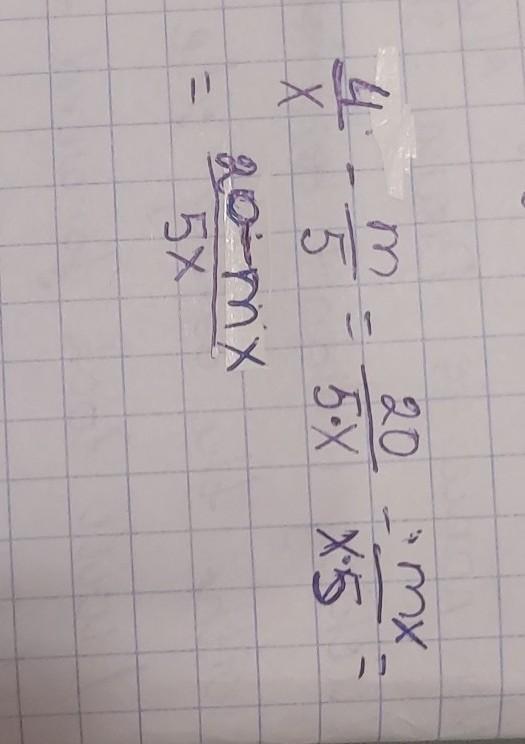 4/x - m/5 = 20/5·x - mx/x·5 =
= 20-mx/5x